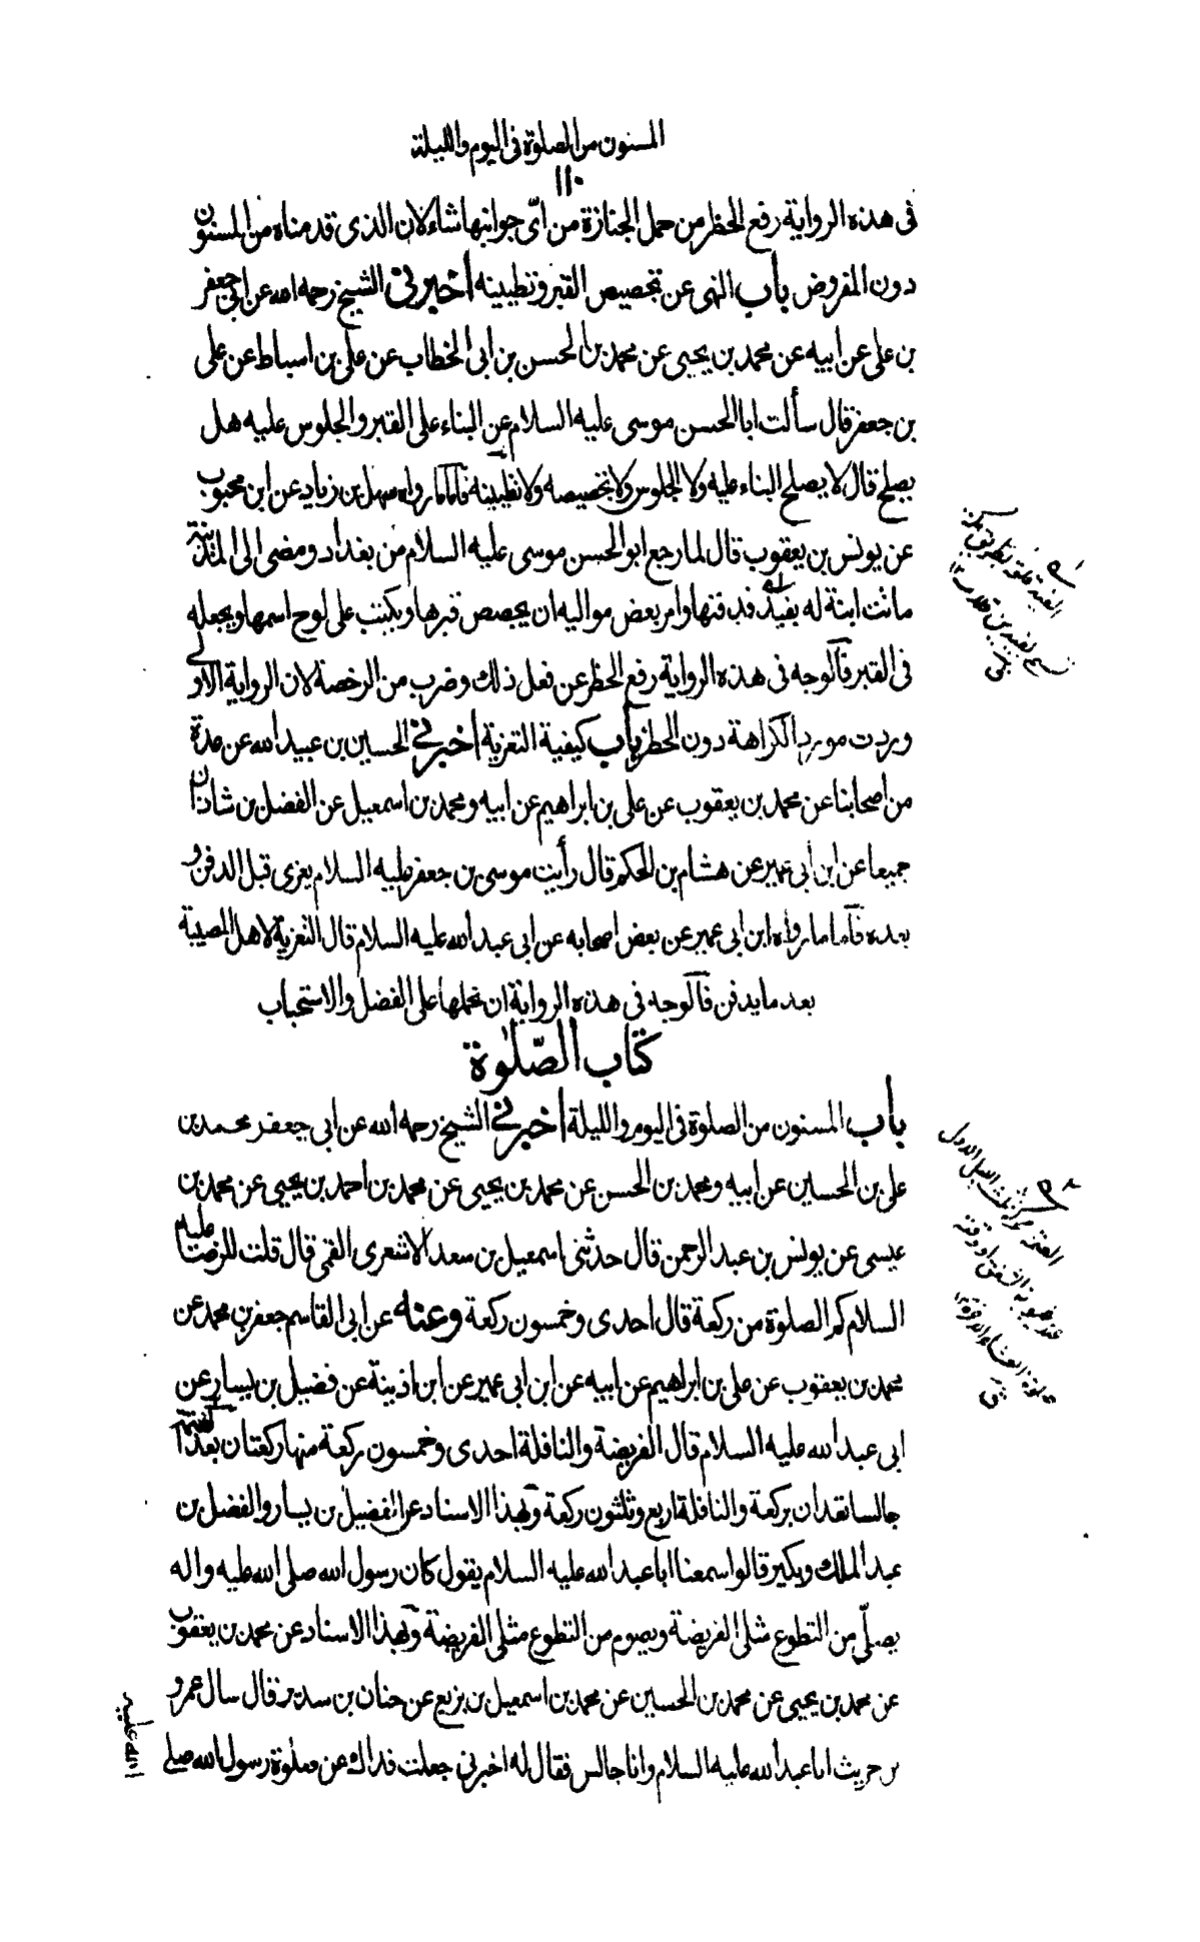 المسنون من الصلوة فى اليوم والليلة
١١٠
فى هذه الرواية رفع الحظر من حمل الجنازة من اىّ جوانبها شاء لان الذى قدمناه من المسنون
دون المفروض باب النهى عن تجصيص القبر وتطيينه اخبرنى الشيخ رحمه الله عن ابى جعفر
بن على عن ابيه عن محمد بن يحيى عن محمد بن الحسن بن ابى الخطاب عن على بن اسباط عن على
بن جعفر قال سألت ابا الحسن موسى عليه السلام عن البناء على القبر والجلوس عليه هل
يصلح قال لا يصلح البناء عليه ولا الجلوس ولا تجصيصه ولا تطيينه فأما ما رواه سهل بن زياد عن ابن محبوب
عن يونس بن يعقوب قال لما رجع ابو الحسن موسى عليه السلام من بغداد ومضى الى المدينة
ماتت ابنة له بفيد فدفنها وامر بعض مواليه ان يجصص قبرها ويكتب على لوح اسمها ويجعله
فى القبر فالوجه فى هذه الرواية رفع الحظر عن فعل ذلك وضرب من الرخصة لان الرواية الاولى
وردت مورد الكراهة دون الحظر باب كيفية التعزية اخبرنى الحسين بن عبيد الله عن عدة
من اصحابنا عن محمد بن يعقوب عن على بن ابراهيم عن ابيه ومحمد بن اسمعيل عن الفضل بن شاذان
جميعا عن ابن أبى عمير عن هشام بن الحكم قال رأيت موسى بن جعفر عليه السلام يعزى قبل الدفن و
بعده فأما ما رواه ابن ابى عمير عن بعض اصحابه عن ابى عبد الله عليه السلام قال التعزية لاهل المصيبة
بعد ما يدفن فالوجه فى هذه الرواية ان نحملها على الفضل والاستحباب
كتاب الصّلوة
باب المسنون من الصلوة فى اليوم والليلة اخبرنى الشيخ رحمه الله عن ابى جعفر محمد بن
على بن الحسين عن ابيه ومحمد بن الحسن عن محمد بن يحيى عن محمد بن احمد بن يحيى عن محمد بن
عيسى عن يونس بن عبد الرحمن قال حدثنى اسمعيل بن سعد الاشعرى القمى قال قلت للرضا عليه
السلام كم الصلوة من ركعة قال احدى وخمسون ركعة وعنه عن ابى القاسم جعفر بن محمد عن
محمد بن يعقوب عن على بن ابراهيم عن ابيه عن ابن ابى عمير عن ابن اذينة عن فضيل بن يسار عن
ابى عبد الله عليه السلام قال الفريضة والنافلة احدى وخمسون ركعة منها ركعتان بعد العتمة
جالسا تعدان بركعة والنافلة اربع وثلثون ركعة وبهذا الاسناد عن الفضيل بن يسار والفضل بن
عبد الملك وبكير قالوا سمعنا ابا عبد الله عليه السلام يقول كان رسول الله صلى الله عليه واله
يصلّى من التطوع مثلى الفريضة ويصوم من التطوع مثلى الفريضة وبهذا الاسناد عن محمد بن يعقوب
عن محمد بن يحيى عن محمد بن الحسين عن محمد بن اسمعيل بن بزيع عن حنان بن سدير قال سال عمرو
بن حريث ابا عبد الله عليه السلام وانا جالس فقال له اخبرنى جعلت فداك عن صلوة رسول الله صلى
الله عليه